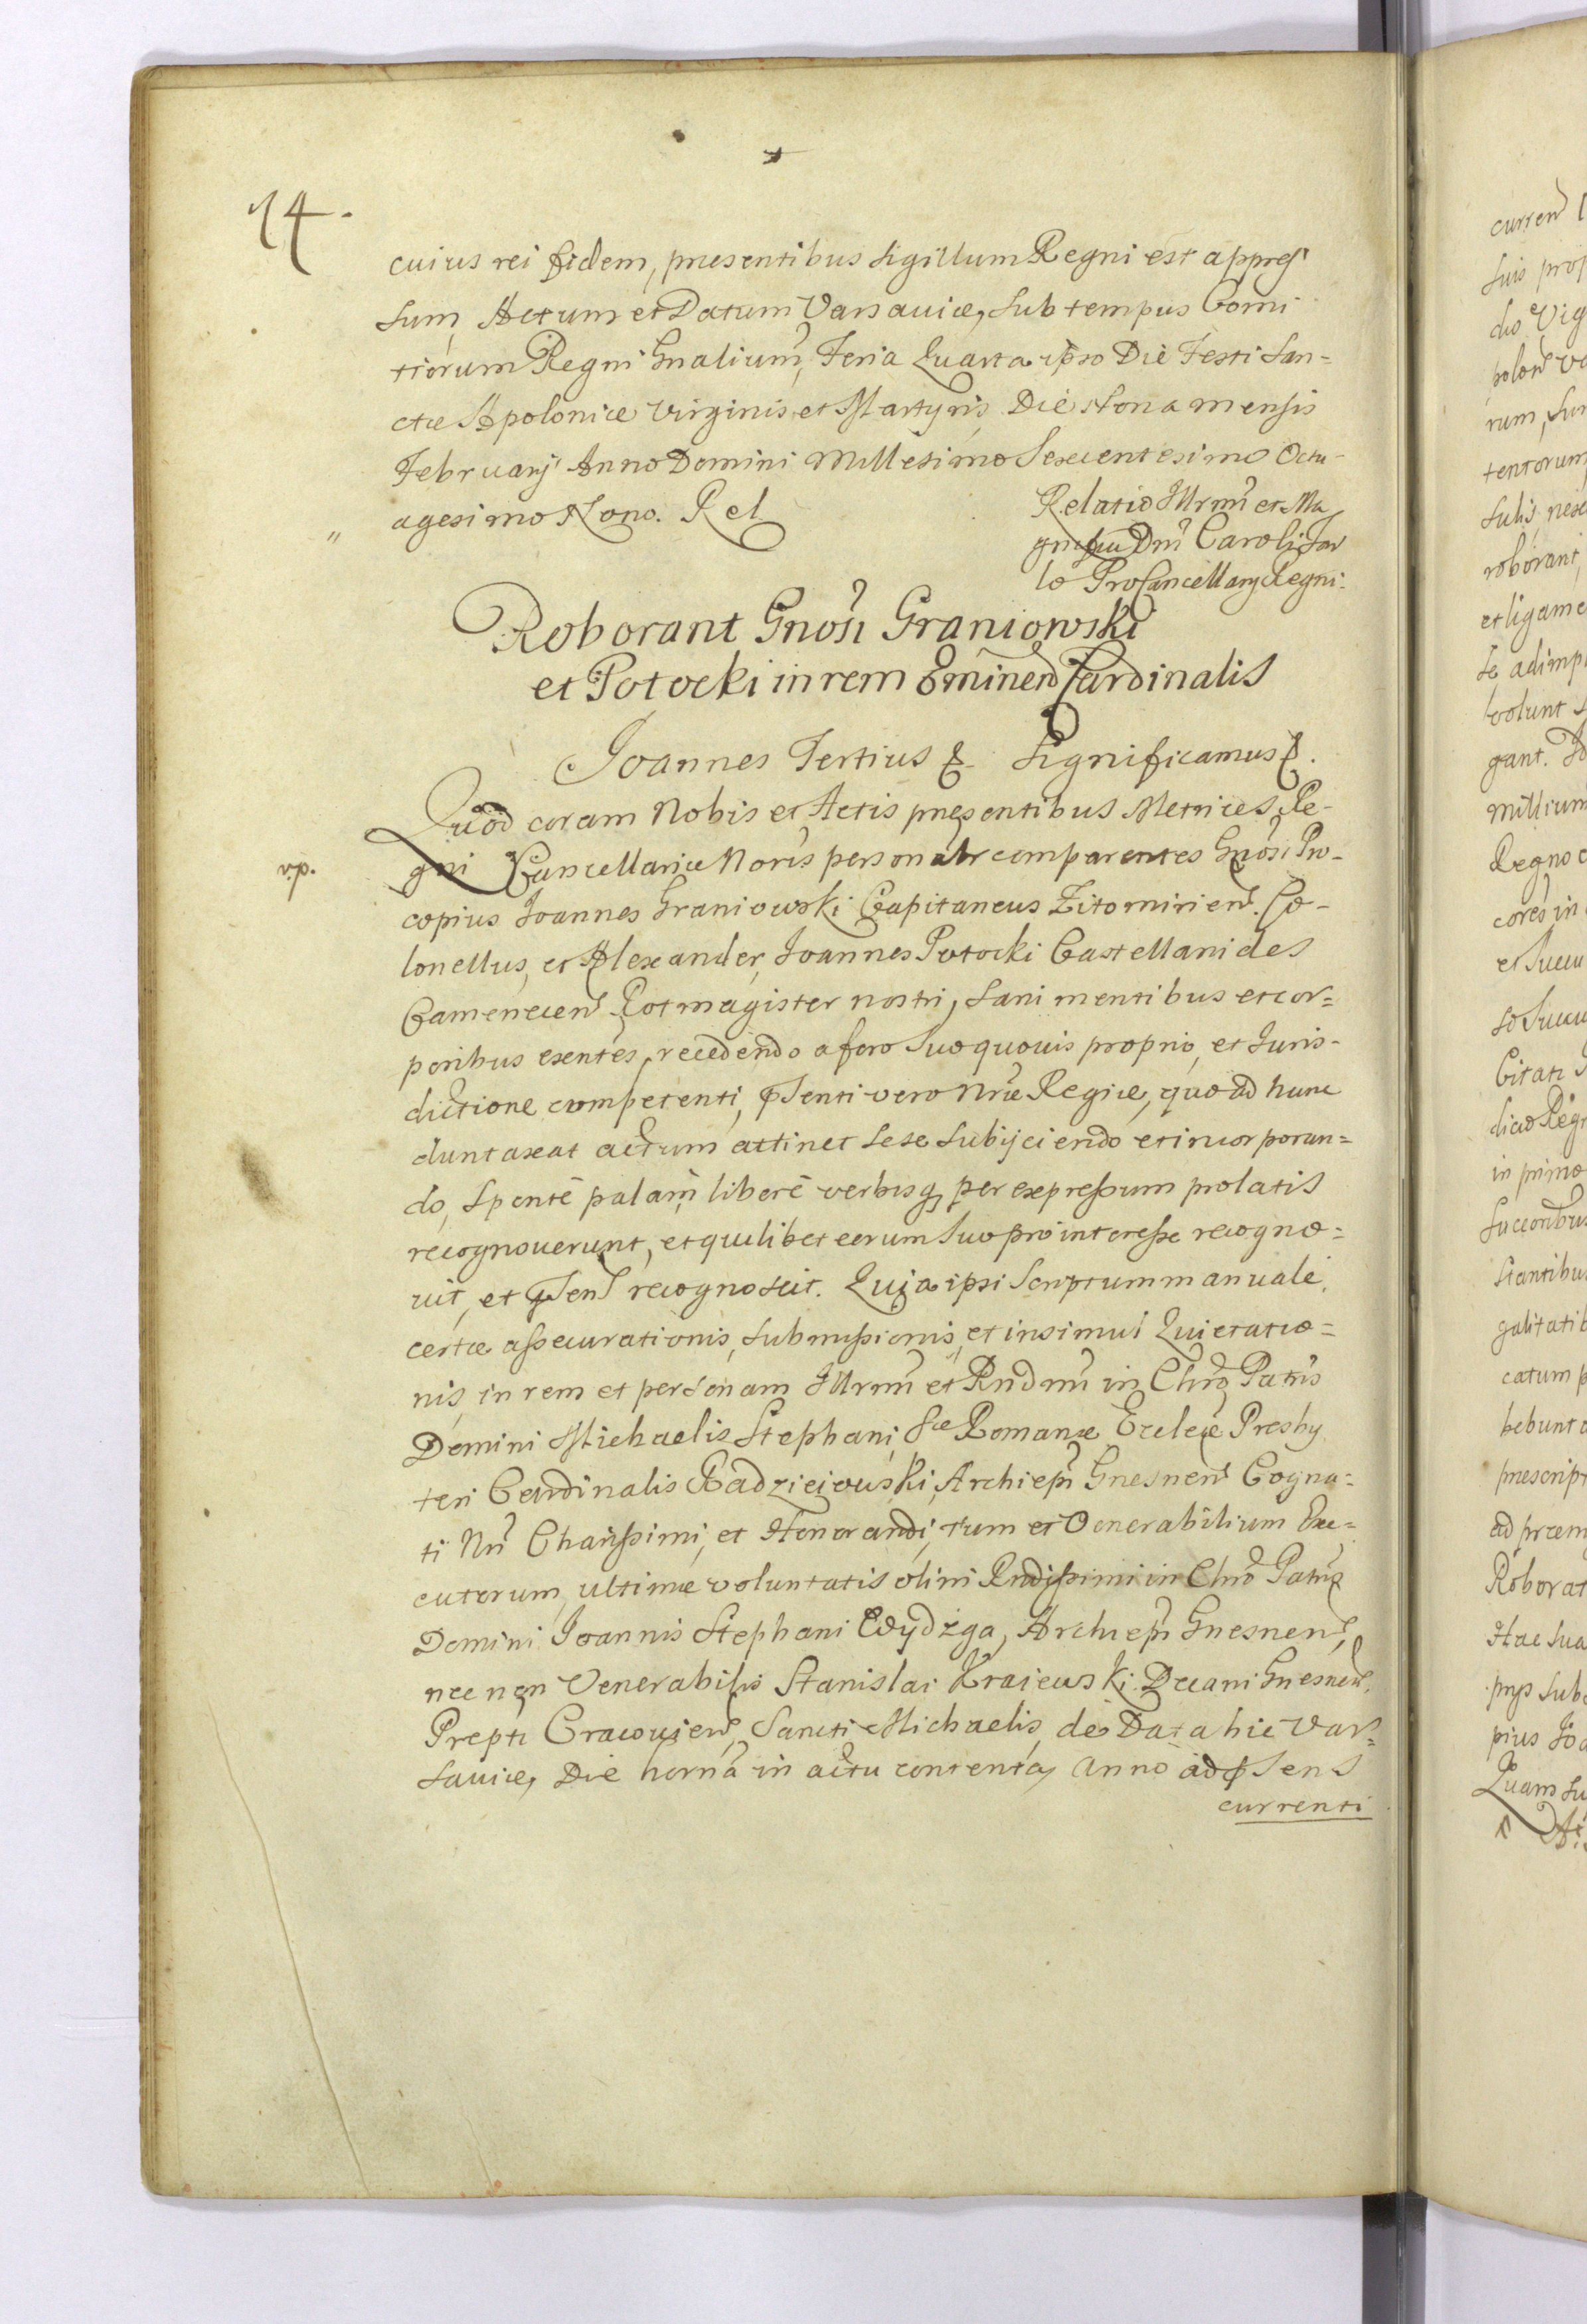 14.
cuius rei fidem, presentibus Sigillum Regni est appres
sum, Actum et Datum Varsaviæ, Sub tempus Comi
tiorum Regni Gnalium, Feria Quarta ipso Die Festi San=
ctæ Apoloniæ Virginis et Martyris, Die Nona mensis
Februarij Anno Domini Millesimo Sexcentesimo Octu-
agesimo Nono. Rel
Relatio Illrmi et Ma
gnifici Dni Caroli Tar
lo ProCancellarij Regni.
Roborant Gnosi Graniowski
et Potocki in rem Eminen Cardinalis
Joannes Tertius &. Significamus &.
Quod coram Nobis et Actis presentibus Metrices Re-
vp.
gni Cancellariæ Noris personaltr comparentes Gnosi Pro-
copius Joannes Graniowski Capitaneus Zitomirien. Co-
lonellus, et Alexander, Joannes Potocki Castellanides
Camenecen Rotmagister nostri, Sani mentibus et cor=
poribus exentes, recedendo a foro Suo quovis proprio, et Juris-
dictione competenti, pSenti vero Nræ Regiæ, quo ad hunc
duntaxat actum attinet Sese Subijciendo et incorporan=
do, Sponte palam libere verbisq per expressum prolatis
recognoverunt, et quilibet eorum Suo pro interesse recogno=
vit, et pSen recognoscit. Quia ipsi Scriptum manuale
certæ assecurationis, Submissionis, et insimul Quietatio=
nis, in rem et personam Illrmi et Rndmi in Chro Patris
Domini Michaelis Stephani, Sæ Romanæ Ecclæ Presby
teri Cardinalis Radzieiowski, Archiepi Gnesnen Cogna=
ti Nri Charissimi, et Honorandi, tum et Venerabilium Exe=
cutorum, ultimæ voluntatis olim Rndissimi in Chro Patris
Domini Joannis Stephani Wydzga, Archiepi Gnesnen,
nec non Venerabilis Stanislai Kraiewski Decani Gnesnen,
Prepti Cracovien, Sancti Michaelis, de Data hic Var=
saviæ, Die horna in actu contenta, Anno ad pSens
currenti